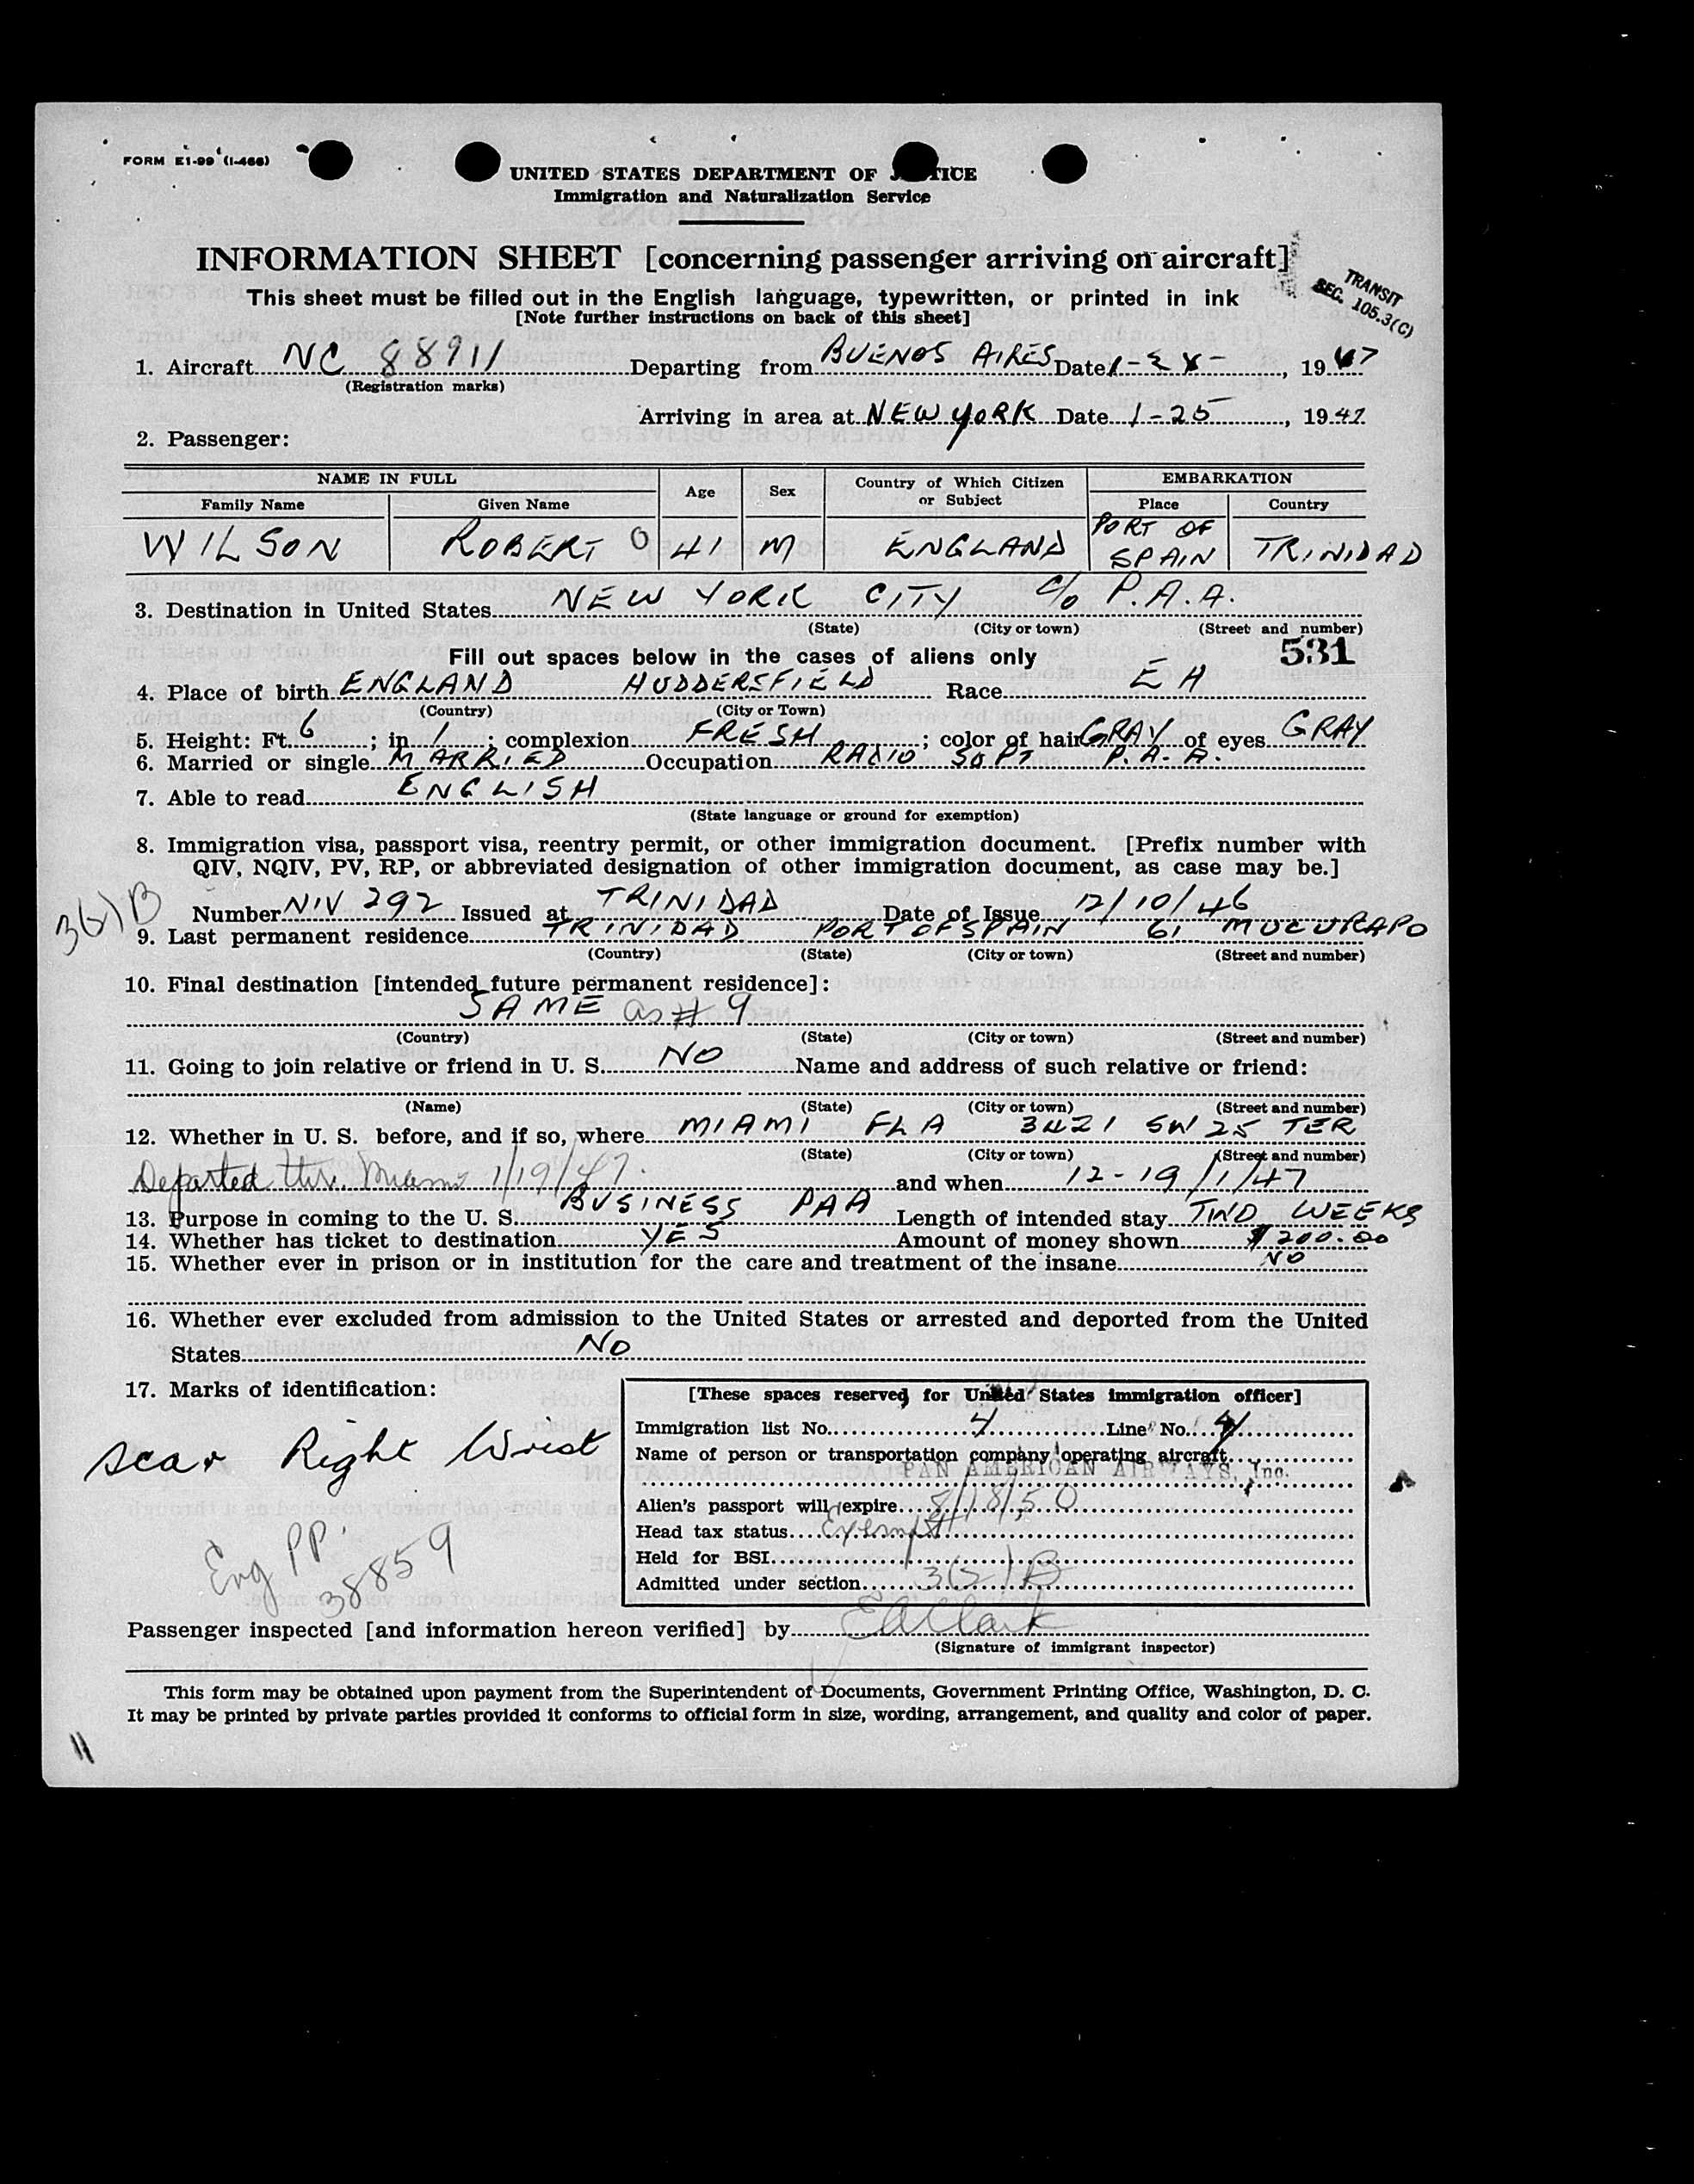 FORM E1-99 (I-466)
UNITED STATES DEPARTMENT OF J TICE
Immigration and Naturalization Service
INFORMATION SHEET [concerning passenger arriving on aircraft]
TRANSIT
SEC. 105.3(C)
This sheet must be filled out in the English language, typewritten, or printed in ink
[Note further instructions on back of this sheet]
1. Aircraft NC 88911 Departing from BUENOS AIRES Date , 1947
(Registration marks)
Arriving in area at NEW YORK Date 1-25, 1947
2. Passenger:
NAME IN FULL Age Sex Country of Which Citizen or Subject EMBARKATION
Family Name Given Name Place Country
WILSON ROBERT O 41 M ENGLAND PORT OF SPAIN TRINIDAD
3. Destination in United States NEW YORK CITY C/o P.A.A.
(State) (City or town) (Street and number)
Fill out spaces below in the cases of aliens only 531
4. Place of birth ENGLAND HUDDERSFIELD Race
(Country) (City or Town)
5. Height: Ft. 6; in. 1; complexion FRESH; color of hair GRAY of eyes GRAY
6. Married or single MARRIED Occupation RADIO SUPT P.A.A.
7. Able to read ENGLISH
(State language or ground for exemption)
8. Immigration visa, passport visa, reentry permit, or other immigration document. [Prefix number with
QIV, NQIV, PV, RP, or abbreviated designation of other immigration document, as case may be.]
Number NIV 292 Issued at TRINIDAD Date of Issue 12/10/46
3(2)B
9. Last permanent residence TRINIDAD PORT OF SPAIN 61 MUCURAPO
(Country) (State) (City or town) (Street and number)
10. Final destination [intended future permanent residence]:
SAME as # 9
(Country) (State) (City or town) (Street and number)
11. Going to join relative or friend in U. S. NO Name and address of such relative or friend:
(Name) (State) (City or town) (Street and number)
12. Whether in U. S. before, and if so, where MIAMI FLA 3421 SW 25 TER
(State) (City or town) (Street and number)
Departed thru Miami 1/19/47. and when 12-19/1/47
13. Purpose in coming to the U. S. BUSINESS PAA Length of intended stay TWO WEEKS
14. Whether has ticket to destination YES Amount of money shown $200.00
15. Whether ever in prison or in institution for the care and treatment of the insane NO
16. Whether ever excluded from admission to the United States or arrested and deported from the United
States NO
17. Marks of identification:
scar Right Wrist
Eng PP.
38859
[These spaces reserved for United States immigration officer]
Immigration list No. 4 Line No. 4
Name of person or transportation company operating aircraft
PAN AMERICAN AIRWAYS, Inc.
Alien's passport will expire 8/18/50
Head tax status Exempt
Held for BSI
Admitted under section 3(2)B
Passenger inspected [and information hereon verified] by EA Clark
(Signature of immigrant inspector)
This form may be obtained upon payment from the Superintendent of Documents, Government Printing Office, Washington, D. C.
It may be printed by private parties provided it conforms to official form in size, wording, arrangement, and quality and color of paper.
11